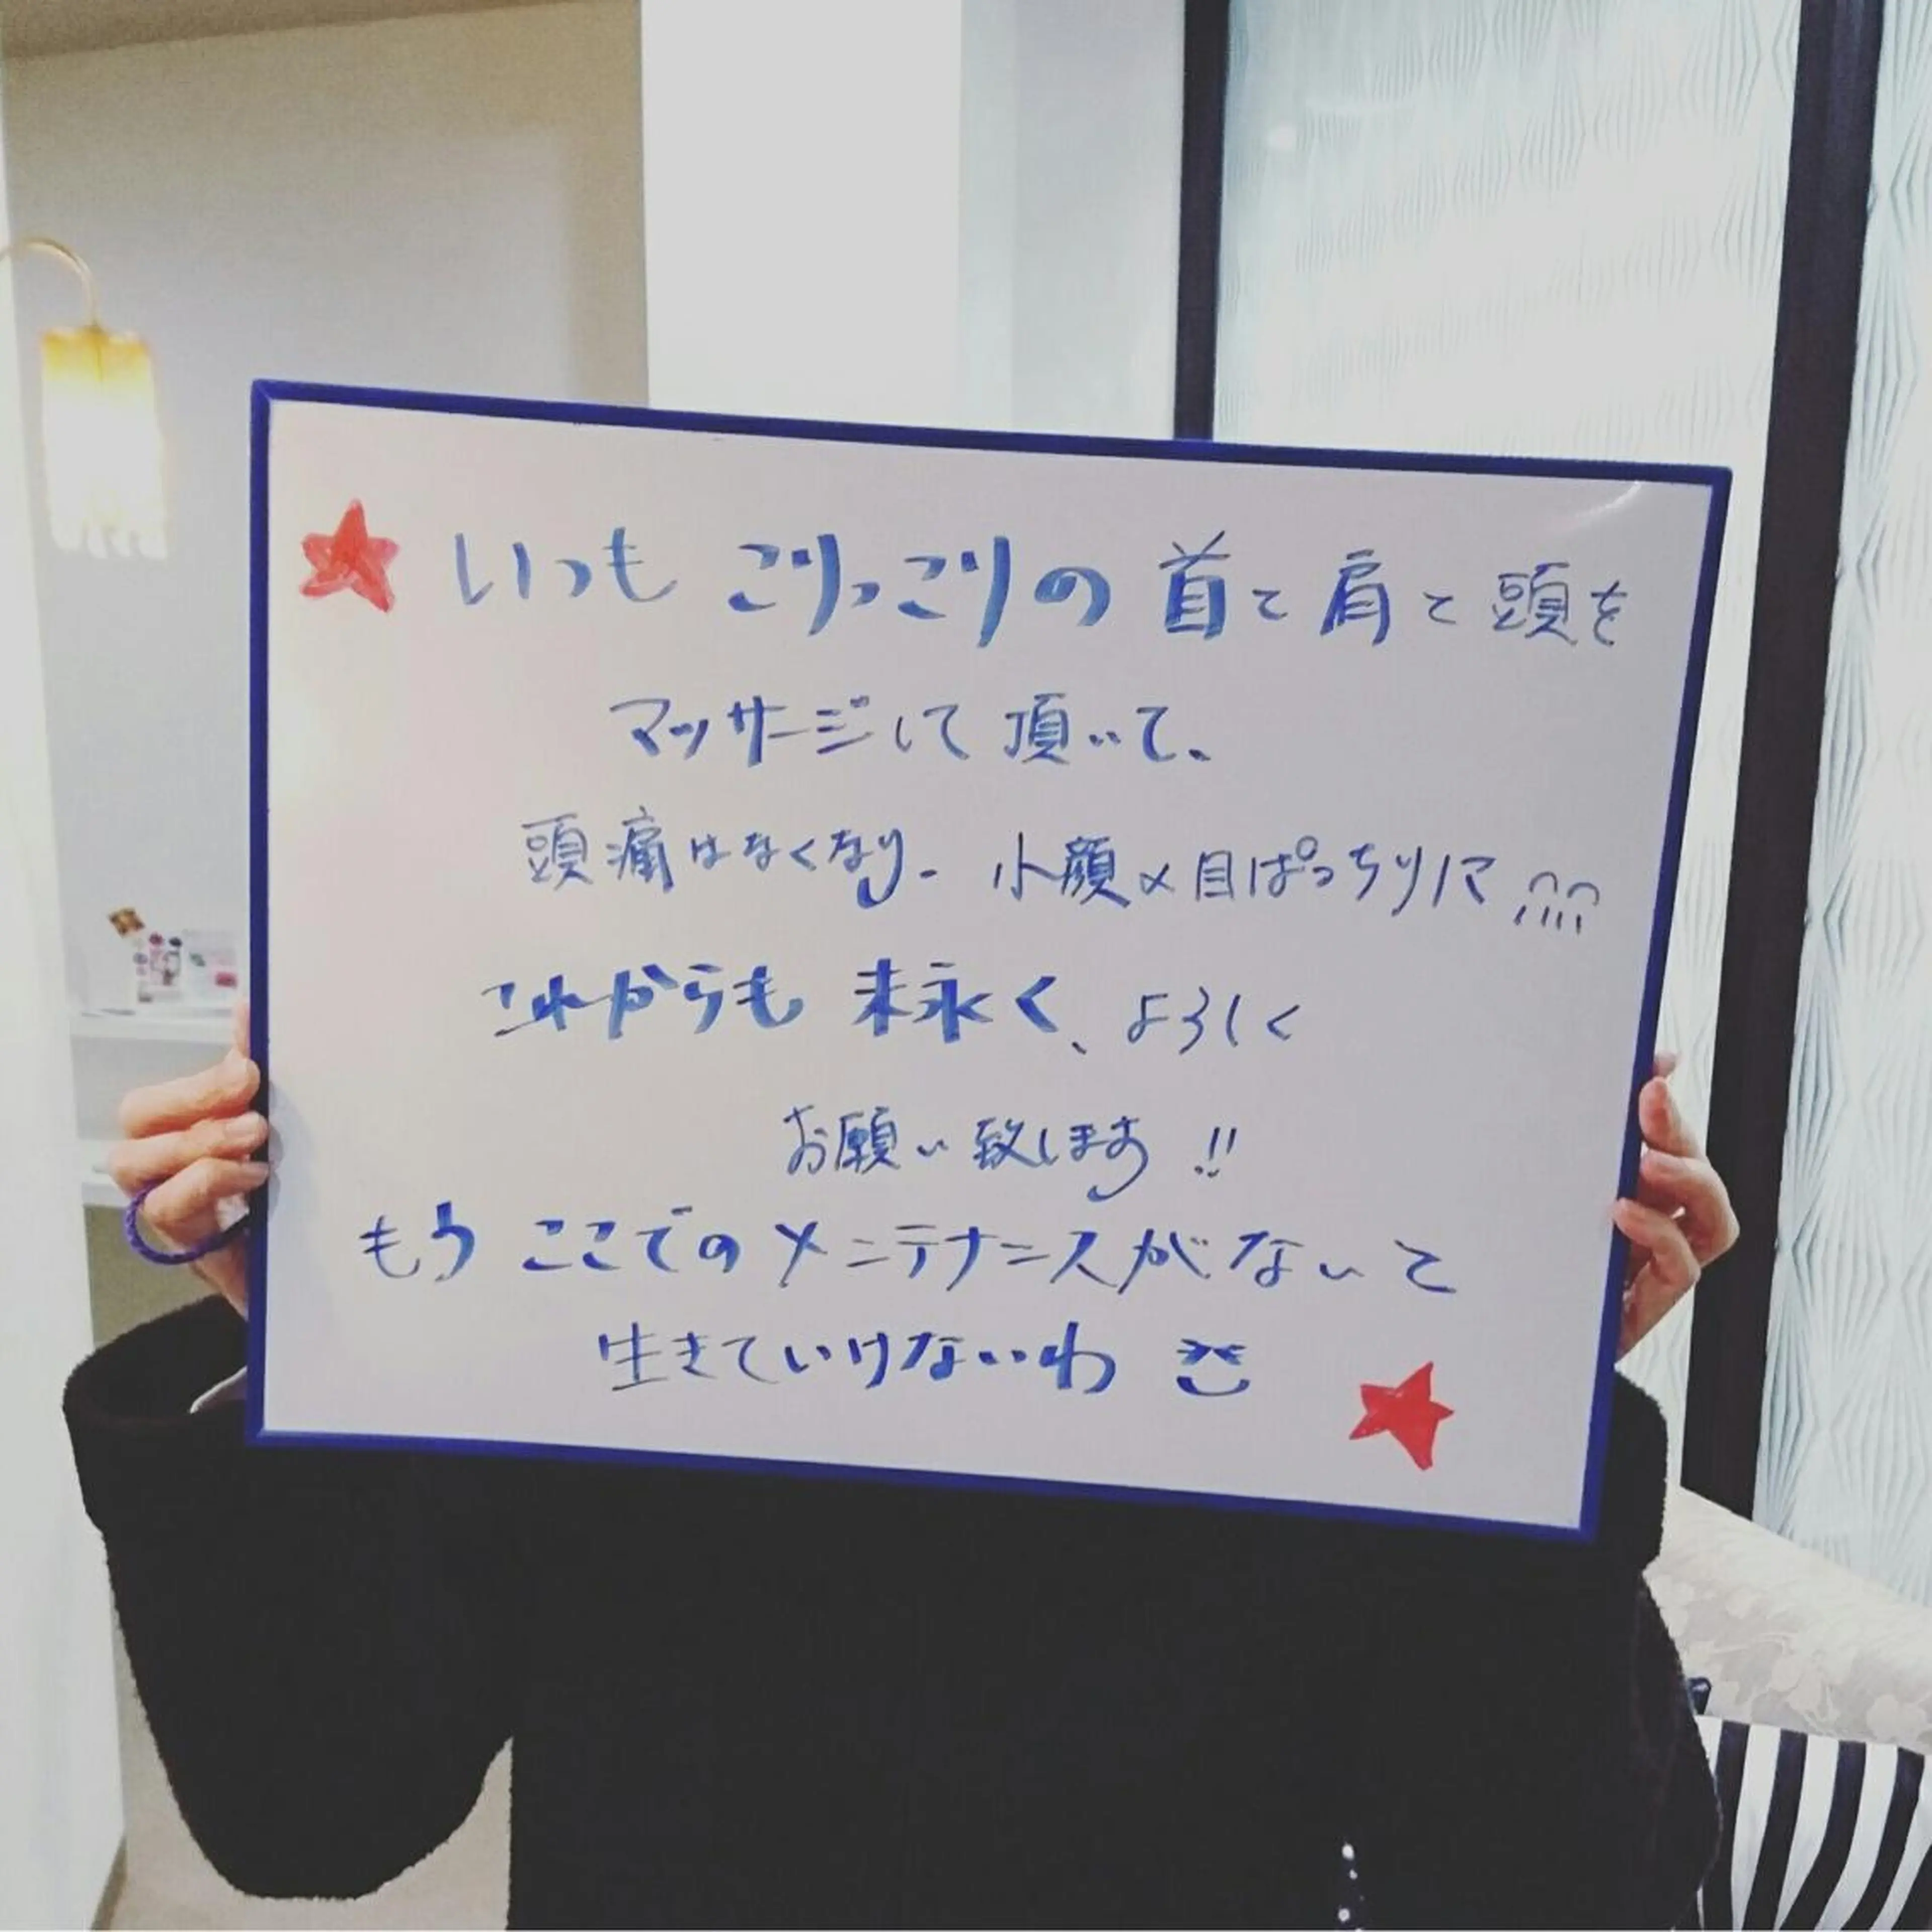 いつも こりっこりの 首と肩と頭を
マッサージして頂いて、
頭痛はなくなり、小顔×目ぱっちりに
これからも 末永く、よろしく
お願い致します!!
もう ここでのメンテナンスがないと
生きていけないわ